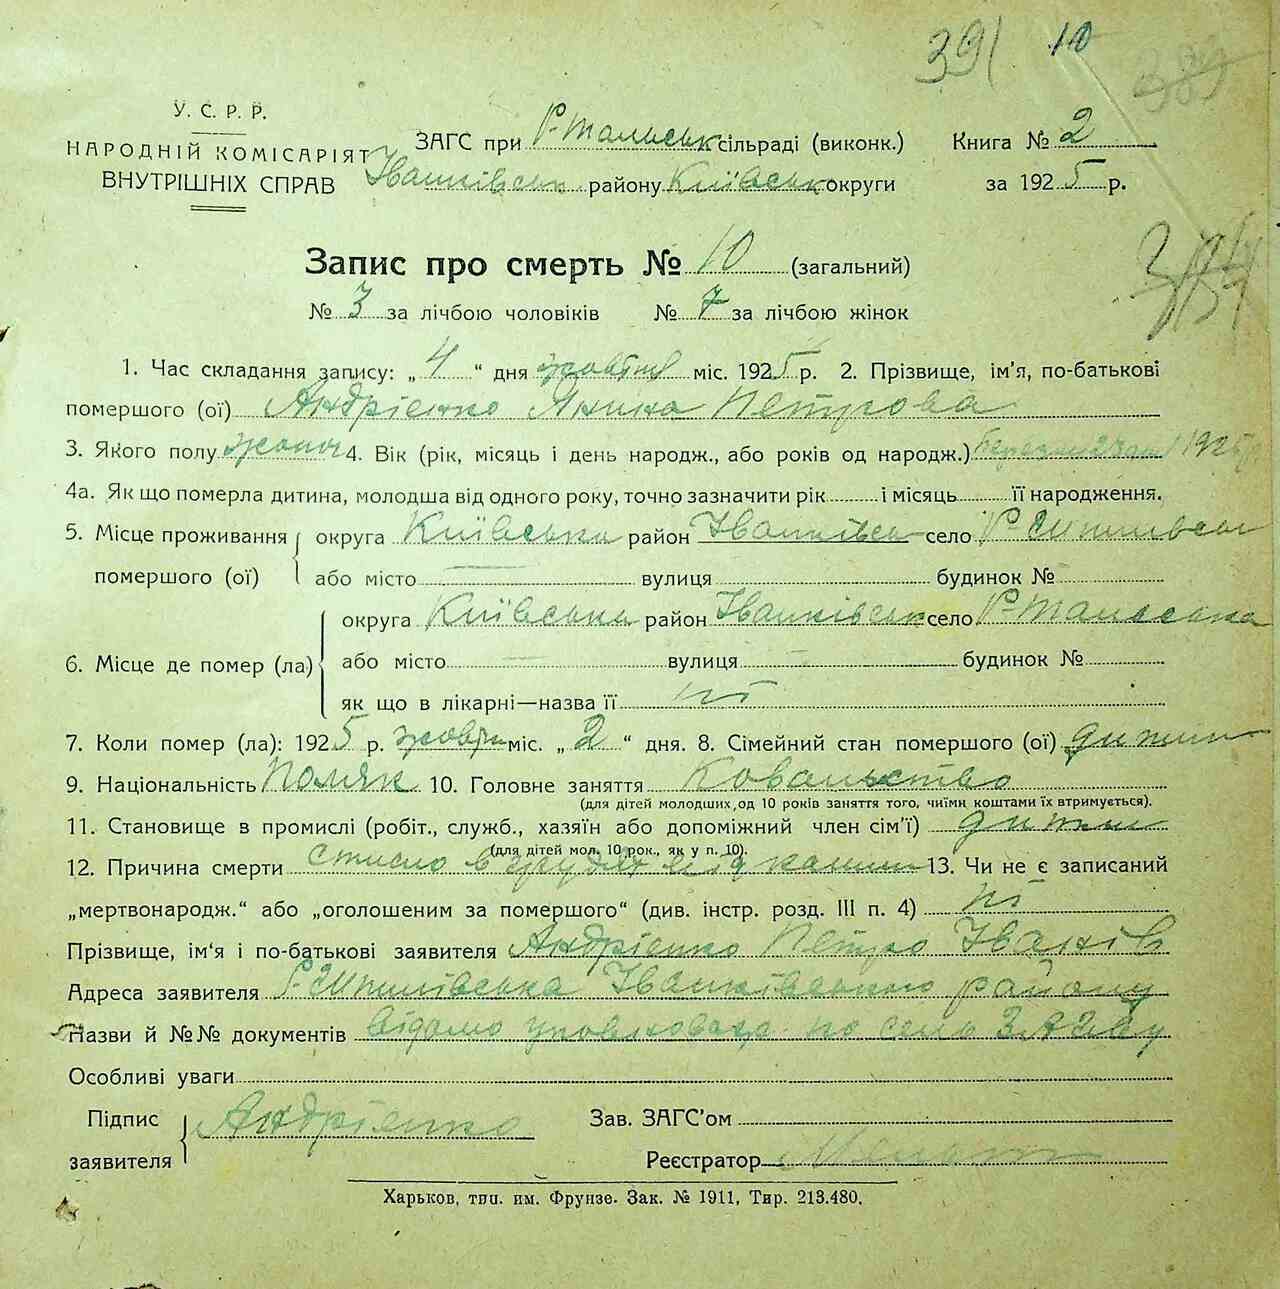 391 10 389
У. С. Р. Р.
НАРОДНІЙ КОМІСАРІЯТ
ВНУТРІШНІХ СПРАВ
ЗАГС при Р-Тальськ сільраді (виконк.)
Іванківськ району Київськ округи
Книга № 2
за 1925 р.
Запис про смерть № 10 (загальний)
№ 3 за лічбою чоловіків № 7 за лічбою жінок
1. Час складання запису: „ 4 “ дня жовтня міс. 1925 р. 2. Прізвище, ім’я, по-батькові
помершого (ої) Андрієнко Янина Петрова
3. Якого полу жоноч 4. Вік (рік, місяць і день народж., або років од народж.) березня 1925
4а. Як що померла дитина, молодша від одного року, точно зазначити рік і місяць її народження.
5. Місце проживання помершого (ої) округа Київська район Іванківськ село
або місто вулиця будинок №
6. Місце де помер (ла) округа Київська район Іванківськ село Р-Тальська
або місто вулиця будинок №
як що в лікарні—назва її ні
7. Коли помер (ла): 1925 р. жовтн міс. „ 2 “ дня. 8. Сімейний стан помершого (ої) дитин
9. Національність Поляк 10. Головне заняття Ковальство
(для дітей молодших од 10 років заняття того, чиїми коштами їх втримується).
11. Становище в промислі (робіт., служб., хазяїн або допоміжний член сім’ї) дитин
(для дітей мол. 10 рок., як у п. 10).
12. Причина смерти 13. Чи не є записаний
„мертвонародж.“ або „оголошеним за помершого“ (див. інстр. розд. III п. 4) ні
Прізвище, ім’я і по-батькові заявителя Андрієнко Петро Іванів
Адреса заявителя Іванківського району
Назви й №№ документів відомо
Особливі уваги
Підпис заявителя Андрієнко
Зав. ЗАГС’ом
Реєстратор
Харьков, тип. им. Фрунзе. Зак. № 1911, Тир. 213.480.